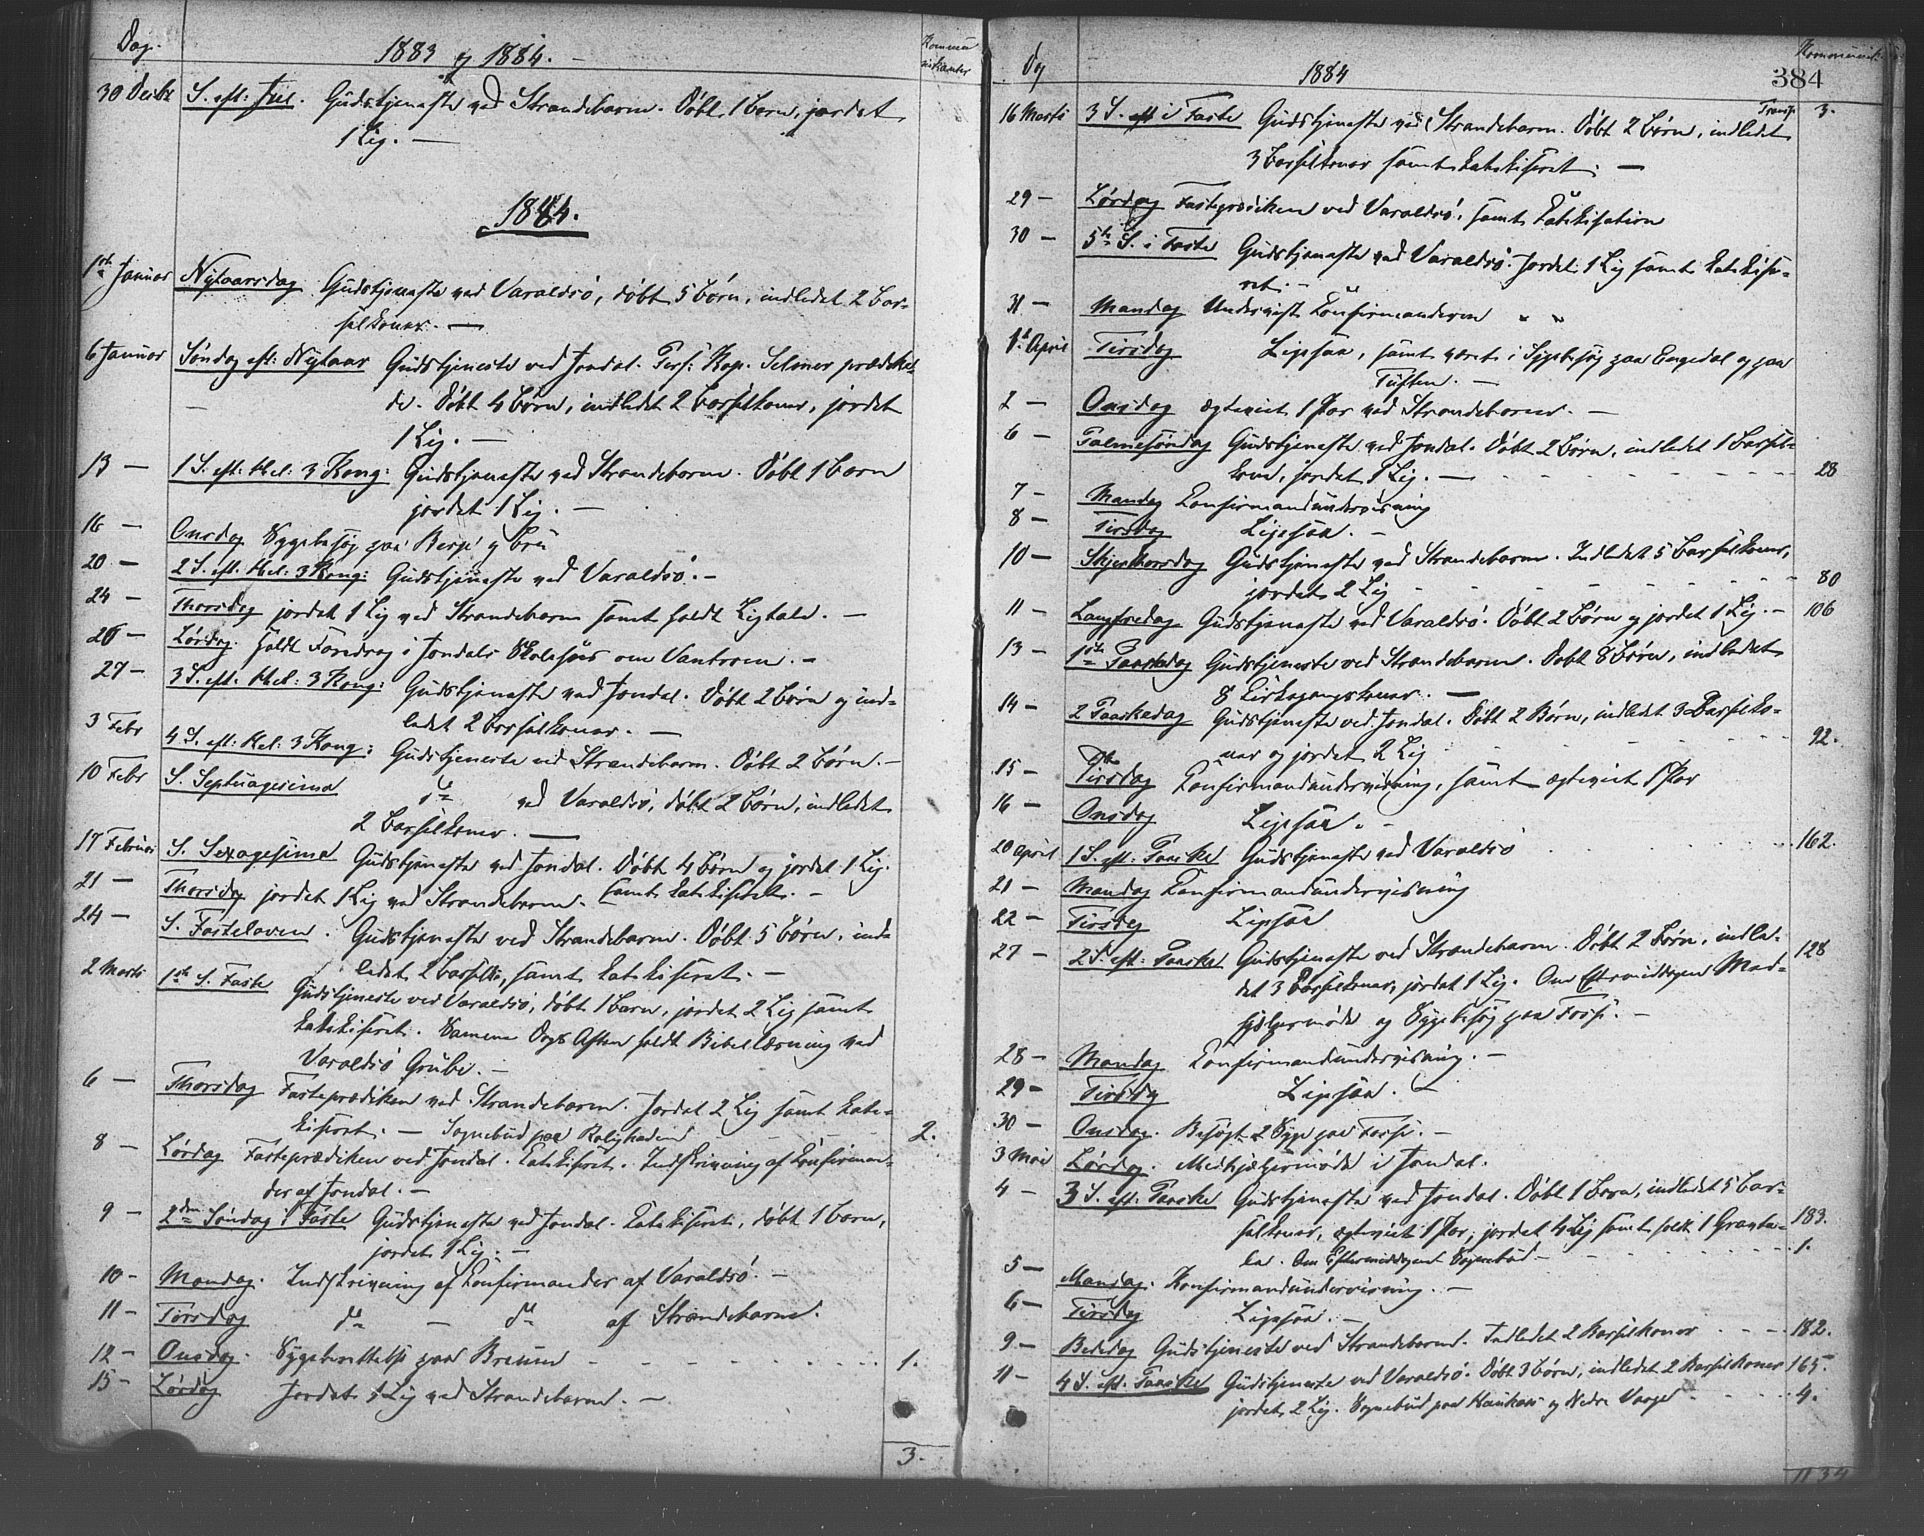 Dag. 1883 og 1884. Kommunikanter
30 Decbr S. eft: Jul. Gudstjeneste ved Strandebarm. Døbt 1 Barn, jordet
1 Lig. —
1884.
1ste Januar Nytaarsdag Gudstjeneste ved Varaldsö, döbt 5 Börn, indledet 2 Bar-
selkoner. —
6 Januar Söndag eft: Nytaar Gudstjeneste ved Jondal. Pers: Kap. Selmer prædike-
de. Döbt 4 Börn, indledet 2 Barselkoner, jordet
1 Lig. —
13 — 1 S. eft: Hel: 3 Kong: Gudstjeneste ved Strandebarm. Döbt 1 Barn
jordet 1 Lig. —
16 — Onsdag Sygebesög paa Berge og
20 — 2 S. eft: Hel: 3 Kong: Gudstjeneste ved Varaldsö. —
24 — Thorsdag jordet 1 Lig ved Strandebarm samt holdt Ligtale. —
26 — Lördag. Holdt Foredrag i Jondals Skolehus om Vantroen. —
27 — 3 S. eft: Hel: 3 Kong: Gudstjeneste ved Jondal. Döbt 2 Börn og ind-
ledet 2 Barselkoner. —
3 Febr 4 S. eft: Hel: 3 Kong: Gudstjeneste ved Strandebarm. Döbt 2 Börn. —
10 Febr S. Septuagesima do ved Varaldsö, döbt 2 Börn, indledet
2 Barselkoner. —
17 Februar S. Sexagesima Gudstjeneste ved Jondal. Döbt 4 Börn og jordet 1 Lig.
21 — Thorsdag jordet 1 Lig ved Strandebarm. samt katekiseret. —
24 — S. Fastelaven. Gudstjeneste ved Strandebarm. Döbt 5 Börn, ind-
ledet 2 Barselk, samt katekiseret. —
2 Marts 1ste S. Faste Gudstjeneste ved Varaldsö, döbt 1 Barn, jordet 2 Lig samt
katekiseret. Samme Dags Aften holdt Bibellæsning ved
Varaldsö Grube. —
6 — Thorsdag Fasteprædiken ved Strandebarm. Jordet 2 Lig samt kate-
kiseret. — Sognebud paa Roligheden 2.
8 — Lördag Fasteprædiken ved Jondal. Katekiseret. Indskrivning af Konfirman-
der af Jondal. —
9 — 2den Söndag i Faste Gudstjeneste ved Jondal. Katekiseret, döbt 1 Barn,
jordet 1 Lig. —
10 — Mandag. Indskrivning af Konfirmander af Varaldsö. —
11 — Tirsdag do — do af Strandebarm.
12 — Onsdag. paa 1.
15 — Lördag Jordet 1 Lig ved Strandebarm. —
3.
Dag 1884 Kommunik.
384
Transp. 3.
16 Marts 3 S. i Faste Gudstjeneste ved Strandebarm. Döbt 2 Börn, indledet
3 Barselkoner samt katekiseret. —
29 — Lördag Fasteprædiken ved Varaldsö, samt Katekisation
30 — 5te S. i Faste Gudstjeneste ved Varaldsö. Jordet 1 Lig samt katekise-
ret. —
31 — Mandag Undervist Konfirmanderne " "
1ste April Tirsdag Ligesaa, samt været i Sygebesög paa Engedal og paa
Tuften. —
2 — Onsdag ægteviet 1 Par ved Strandebarm. —
6 — Palmesöndag Gudstjeneste ved Jondal. Döbt 2 Börn, indledet 1 Barsel-
kone, jordet 1 Lig. — 28
7 — Mandag Konfirmandundervisning
8 — Tirsdag Ligesaa. —
10 — Skjærthorsdag Gudstjeneste ved Strandebarm. Indledet 5 Barselkoner,
jordet 2 Lig 80
11 — Langfredag Gudstjeneste ved Varaldsö. Döbt 2 Börn og jordet 1 Lig. — 106
13 — 1ste Paaskedag Gudstjeneste ved Strandebarm. Döbt 8 Börn, indledet
8 Kirkegangskoner. —
14 — 2 Paaskedag Gudstjeneste ved Jondal. Döbt 2 Börn, indledet 3 Barselko-
ner og jordet 2 Lig 92.
15 — Tirsdag Konfirmandundervisning, samt ægteviet 1 Par
16 — Onsdag Ligesaa. —
20 April 1 S. eft: Paaske Gudstjeneste ved Varaldsö 162.
21 — Mandag Konfirmandundervisning
22 — Tirsdag Ligesaa
27 — 2 S. eft: Paaske Gudstjeneste ved Strandebarm. Döbt 2 Börn, indle- 128
det 3 Barselkoner, jordet 1 Lig. Om Eftermiddagen Med-
hjælpermöde og Sygebesög paa Fosse. —
28 — Mandag Konfirmandundervisning. —
29 — Tirsdag Ligesaa. —
30 — Onsdag. Besögt 2 Syge paa Fosse. —
3 Mai Lördag. Medhjælpermöde i Jondal.
4 — 3 S. eft: Paaske Gudstjeneste ved Jondal. Döbt 1 Barn, indledet 5 Bar-
selkoner, ægteviet 1 Par, jordet 4 Lig samt holdt 1 Gravta- 183.
le. Om Eftermiddagen Sognebud — 1.
5 — Mandag. Konfirmandundervisning. —
6 — Tirsdag Ligesaa. —
9 — Bededag Gudstjeneste ved Strandebarm. Indledet 2 Barselkoner 182.
11 — 4 S. eft: Paaske Gudstjeneste ved Varaldsö. Döbt 3 Börn, indledet 2 Barselkoner 165.
jordet 2 Lig. Sognebud paa og Nedre Vaage 4.
1134